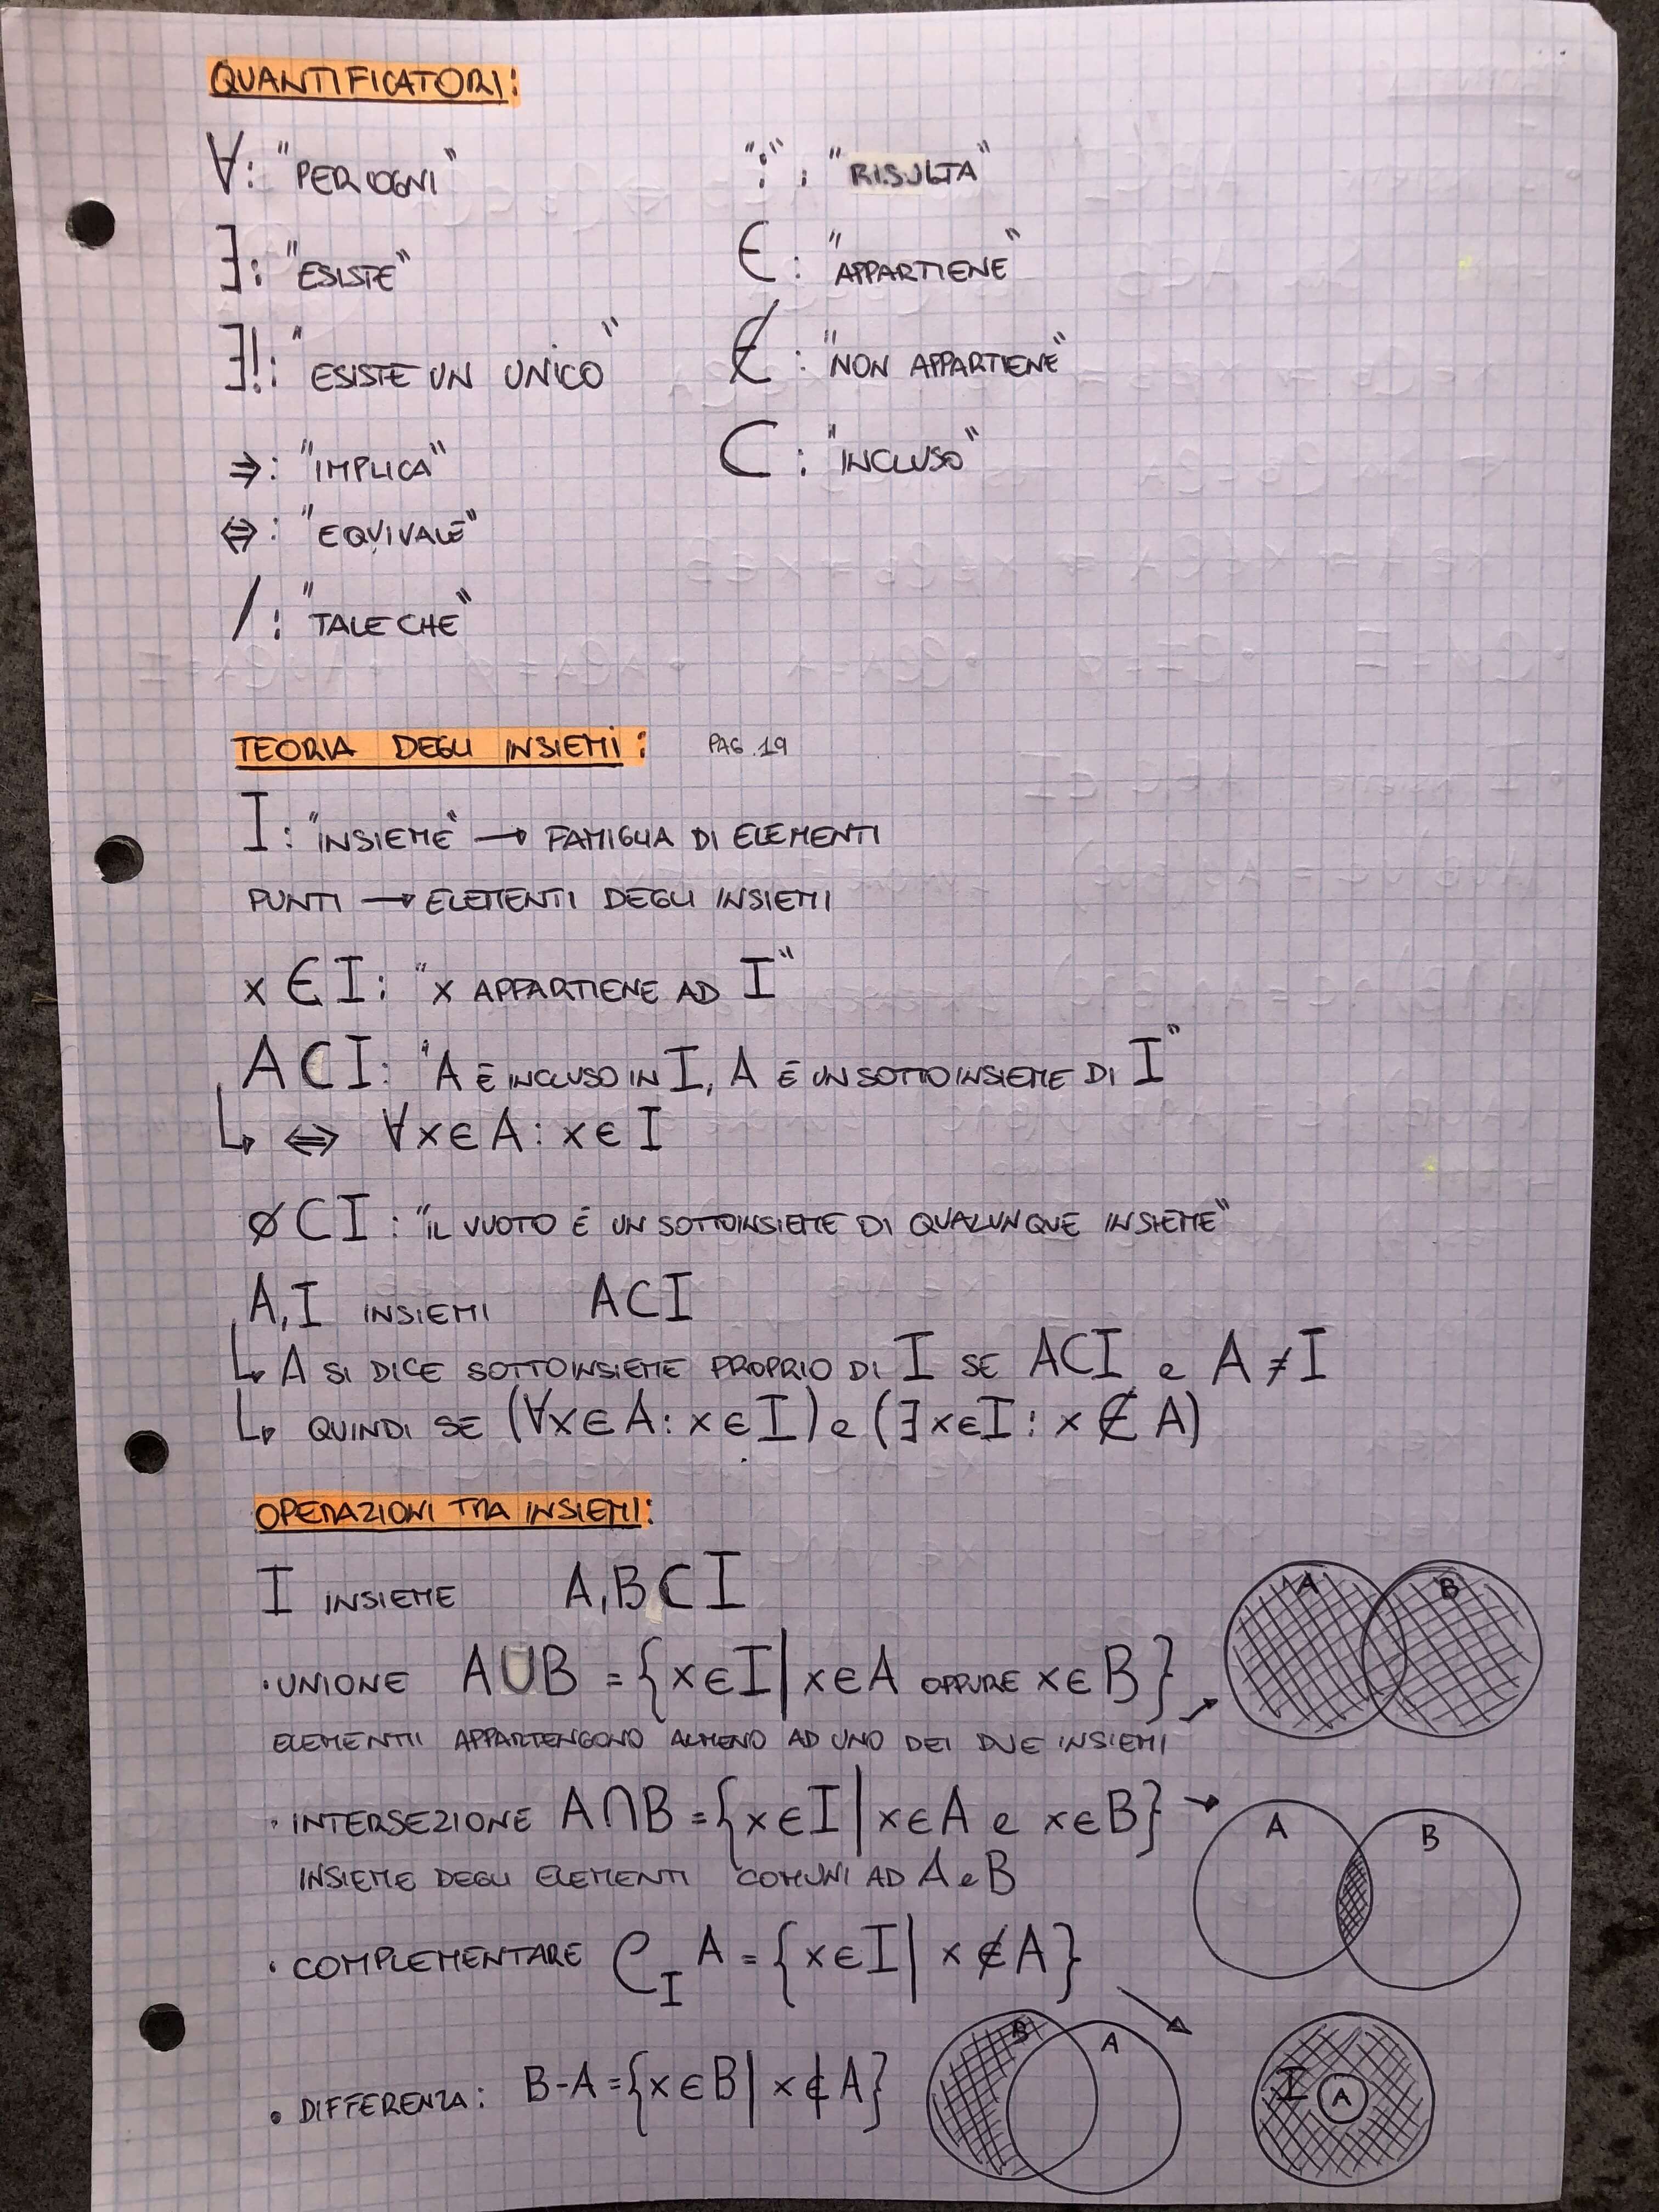 QUANTIFICATORI:
∀: "PER OGNI"
":" : "RISULTA"
∃: "ESISTE"
∈: "APPARTIENE"
∃!: "ESISTE UN UNICO"
∉: "NON APPARTIENE"
⇒: "IMPLICA"
⊂: "INCLUSO"
⇔: "EQUIVALE"
/: "TALE CHE"
TEORIA DEGLI INSIEMI: PAG. 19
I: "INSIEME" → FAMIGLIA DI ELEMENTI
PUNTI → ELEMENTI DEGLI INSIEMI
x ∈ I: "x APPARTIENE AD I"
A ⊂ I: "A È INCLUSO IN I, A È UN SOTTOINSIEME DI I"
↳ ⇔ ∀x∈A: x∈I
∅ ⊂ I: "IL VUOTO È UN SOTTOINSIEME DI QUALUNQUE INSIEME"
A, I INSIEMI A⊂I
↳ A SI DICE SOTTOINSIEME PROPRIO DI I SE A⊂I e A≠I
↳ QUINDI SE (∀x∈A: x∈I) e (∃x∈I: x∉A)
OPERAZIONI TRA INSIEMI:
I INSIEME A,B⊂I
A B
· UNIONE A∪B = {x∈I | x∈A OPPURE x∈B}
ELEMENTII APPARTENGONO ALMENO AD UNO DEI DUE INSIEMI
· INTERSEZIONE A∩B = {x∈I | x∈A e x∈B} →
A B
INSIEME DEGLI ELEMENTI COMUNI AD A e B
· COMPLEMENTARE C_I A = {x∈I | x∉A}
B A
I A
• DIFFERENZA: B-A = {x∈B | x∉A}